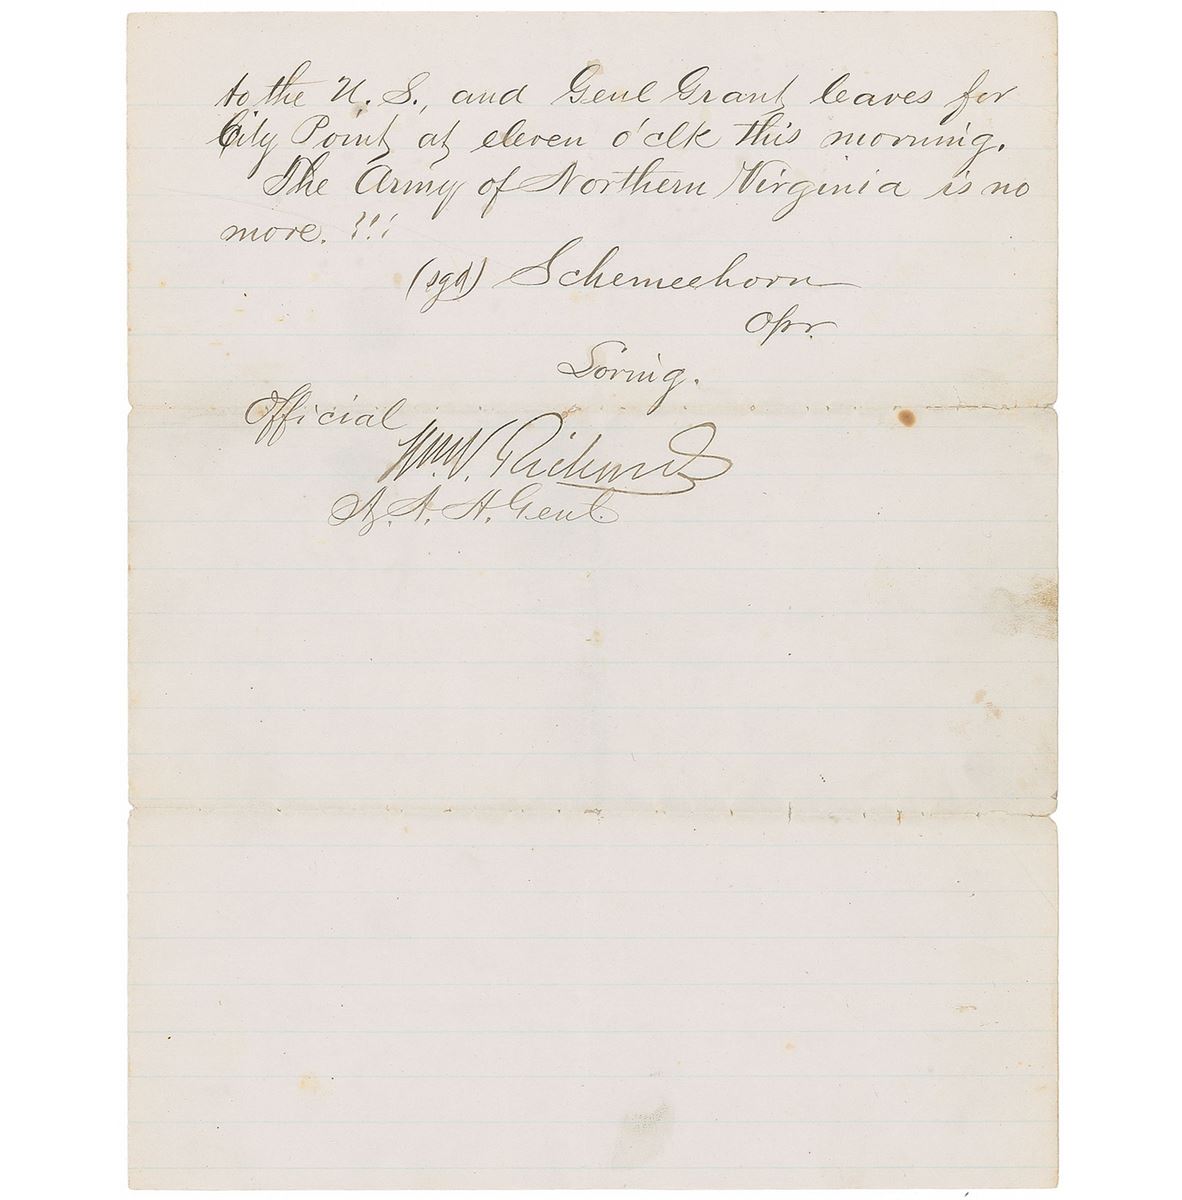 to the U. S., and Genl Grant leaves for
City Point at eleven o'clk this morning.
The Army of Northern Virginia is no
more. !!!
(sgd) Schemeehorn
Opr.
Loring.
Official
Wm V. Richards
A. A. A. Genl.